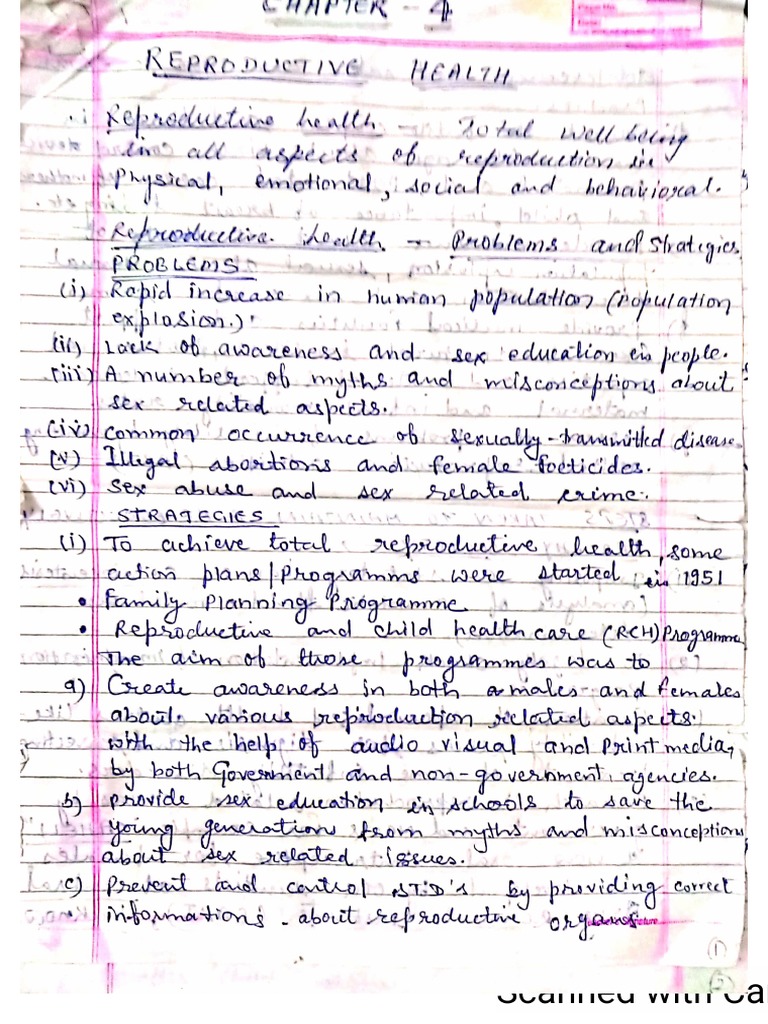 CHAPTER - 4
REPRODUCTIVE HEALTH
Reproductive health - Total well being
in all aspects of reproduction in
Physical, emotional, social and behavioral.
Reproductive health - Problems and Strategies.
PROBLEMS
(i) Rapid increase in human population (Population
explosion.)
(ii) Lack of awareness and sex education in people.
(iii) A number of myths and misconceptions about
sex related aspects.
(iv) common occurrence of sexually-transmitted disease
(v) Illegal abortions and female foeticides.
(vi) Sex abuse and sex related crime.
STRATEGIES
(i) To achieve total reproductive health, some
action plans/Programms were started in 1951
• Family Planning Programme
• Reproductive and child health care (RCH) Programme
The aim of those programmes was to
a) Create awareness in both a males and females
about various reproduction related aspects.
with the help of audio visual and Print media,
by both Government and non-government agencies.
b) provide sex education in schools to save the
young generations from myths and misconceptions
about sex related issues.
c) Prevent and control STD's by providing correct
informations about reproductive organs
(1)
(2)
Scanned with Ca